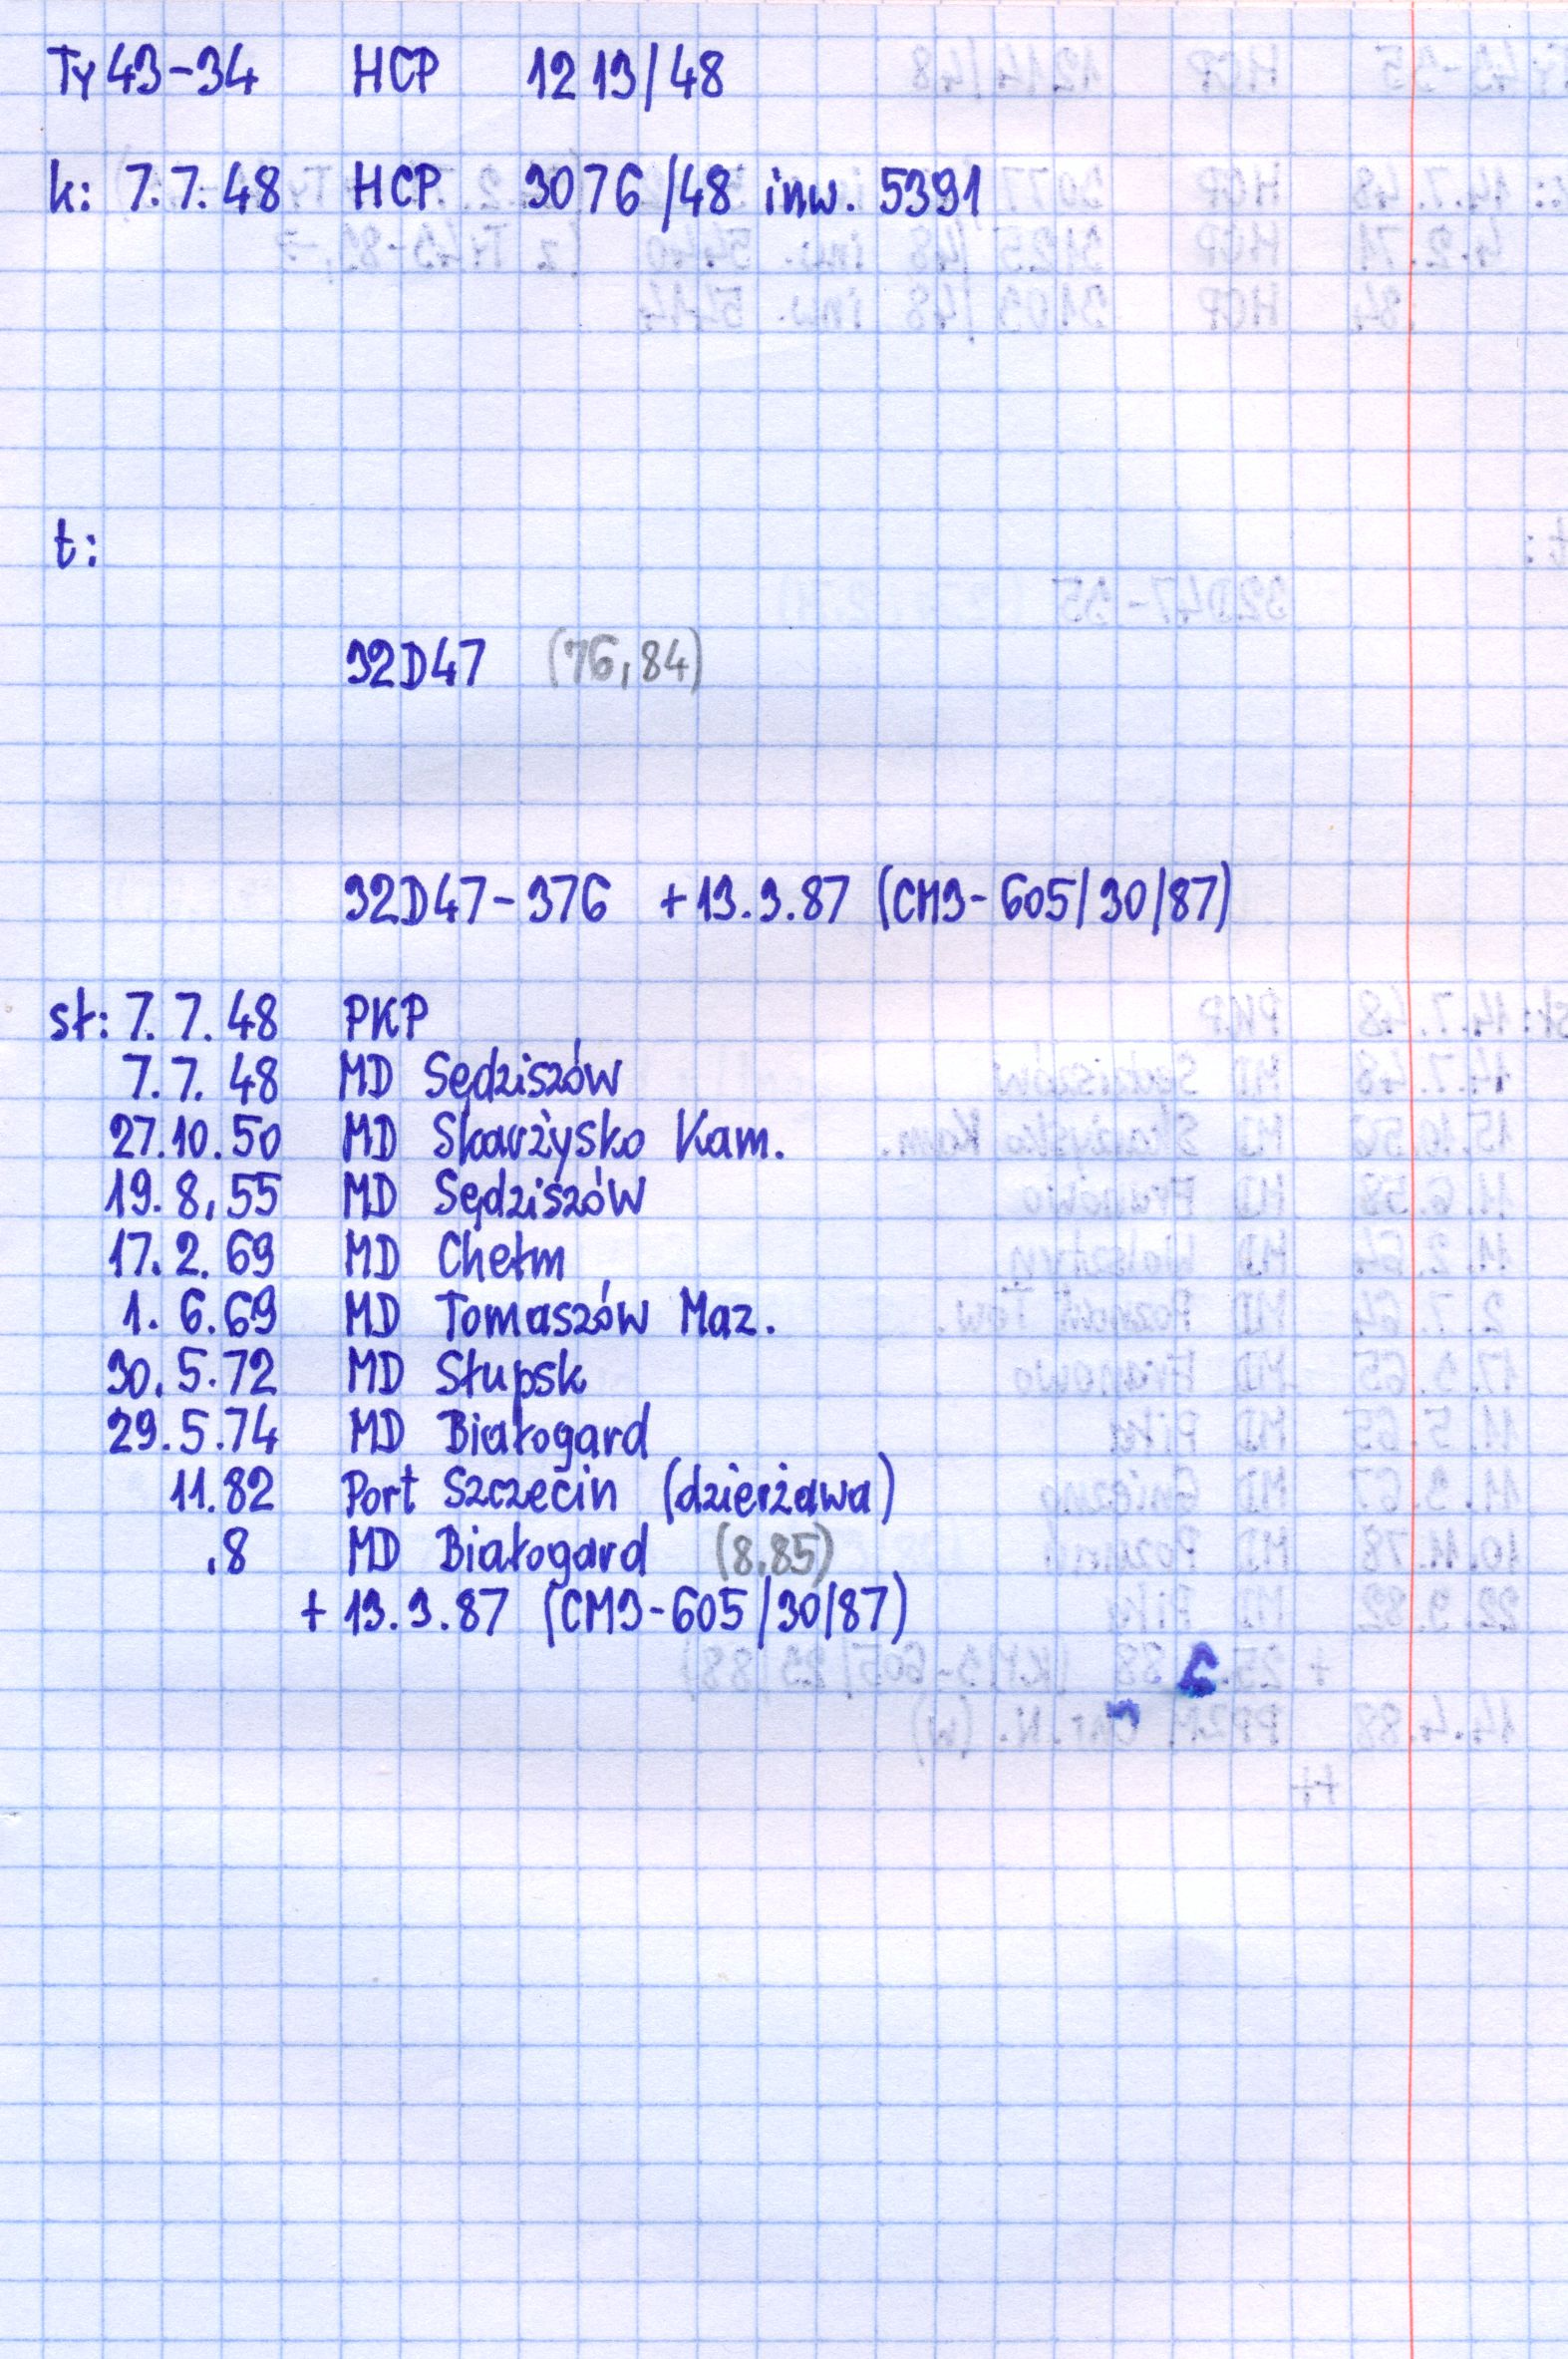 Ty43-34 HCP 1213/48
k: 7.7.48 HCP 3076/48 inw. 5391
t:
32D47 (76,84)
32D47-376 +13.3.87 (CM3-605/30/87)
sł: 7.7.48 PKP
7.7.48 MD Sędziszów
27.10.50 MD Skarżysko Kam.
19.8.55 MD Sędziszów
17.2.69 MD Chełm
1.6.69 MD Tomaszów Maz.
30.5.72 MD Słupsk
29.5.74 MD Białogard
11.82 Port Szczecin (dzierżawa)
.8 MD Białogard (8.85)
+ 13.3.87 (CM3-605/30/87)